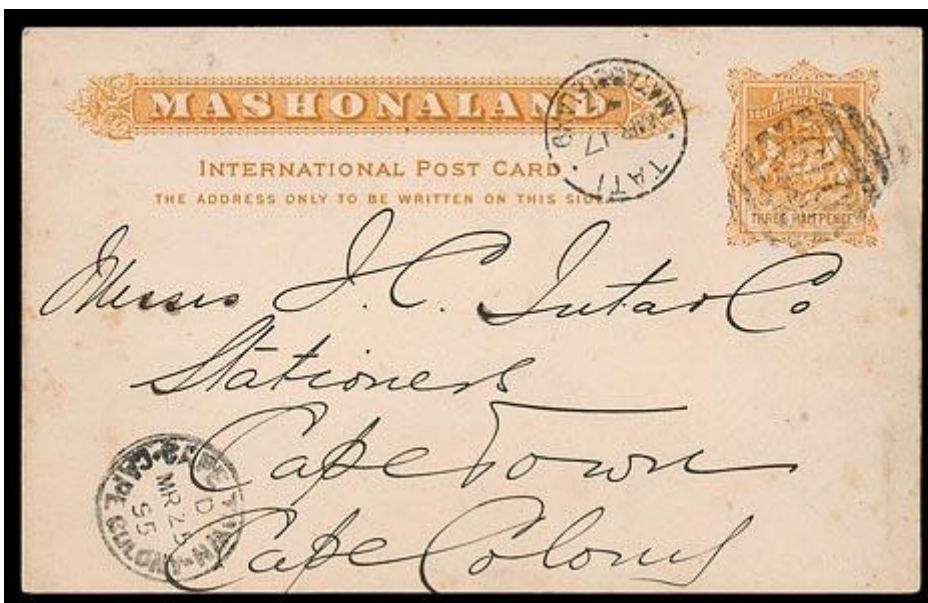 MASHONALAND
INTERNATIONAL POST CARD
THE ADDRESS ONLY TO BE WRITTEN ON THIS SIDE
BRITISH
THREE HALFPENCE
TATI
MR 17
Messrs J. C. Juta & Co
Stationers
Cape Town
Cape Colony
CAPE TOWN
D
MR 23
95
CAPE COLONY